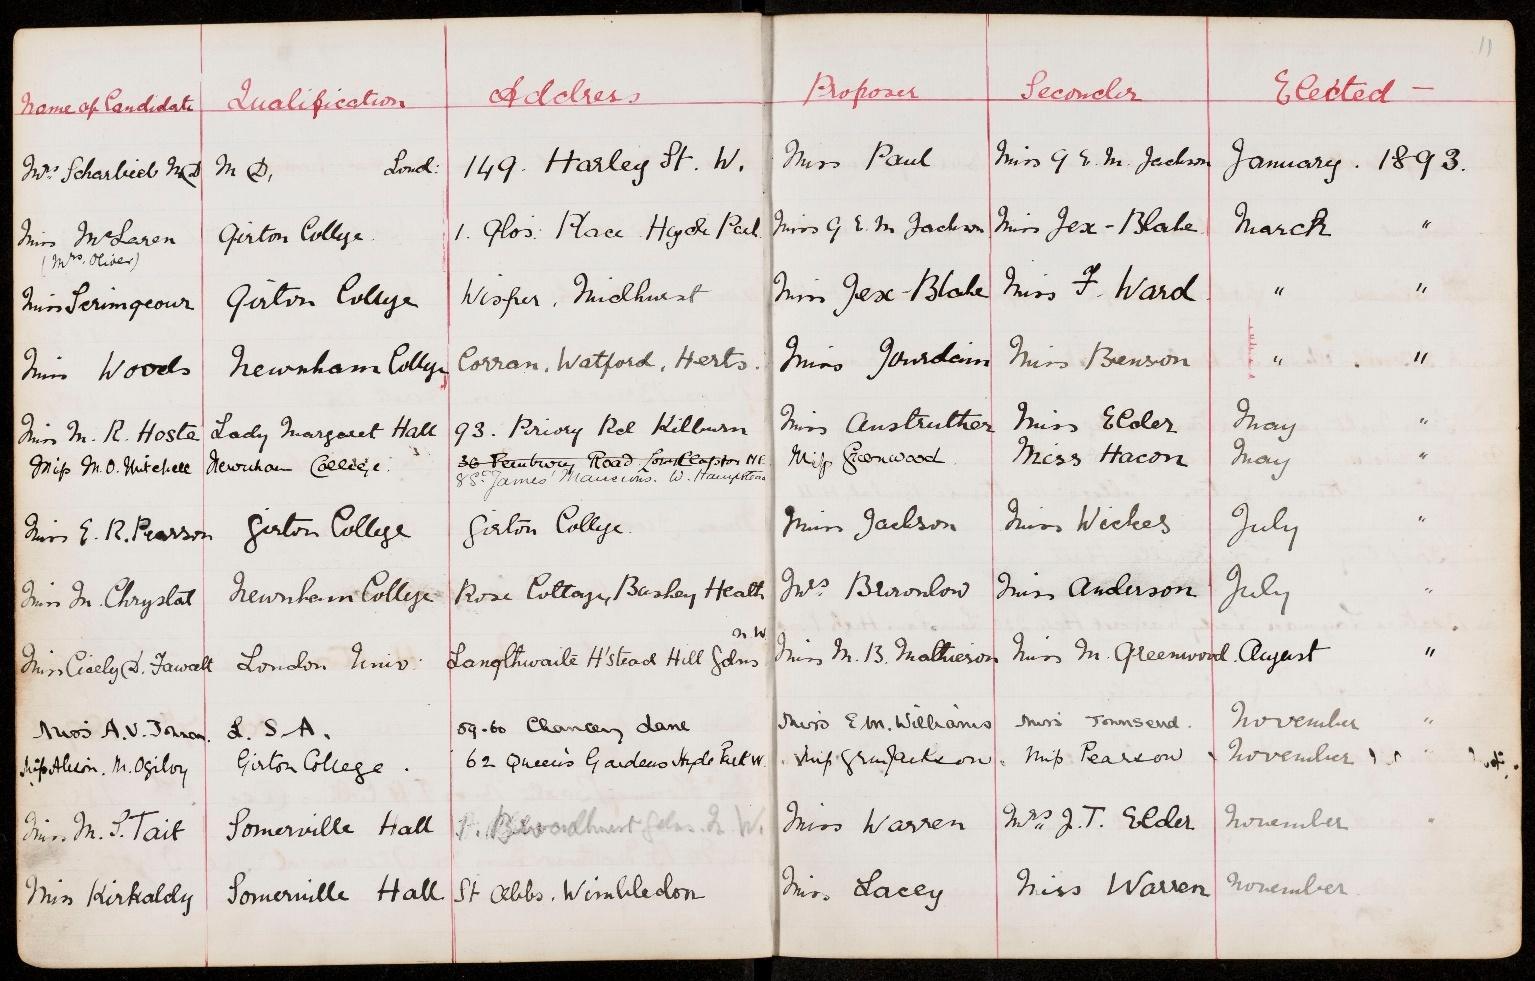 11
Name of Candidate Qualification Address Proposer Seconder Elected —
Mrs. Scharlieb M.D M D, Lond: 149. Harley St. W. Miss Paul Miss G E. M. Jackson January. 1893.
Miss McLaren Girton College. 1. Glos: Place Hyde Park Miss G E. M Jackson Miss Jex-Blake March "
(Mrs. Oliver)
Miss Scrimgeour Girton College Wispers, Midhurst Miss Jex-Blake Miss F. Ward " "
Miss Woods Newnham College Corran, Watford, Herts. Miss Jourdain Miss Benson " "
Miss M. R. Hoste Lady Margaret Hall 93. Priory Rd Kilburn Miss Anstruther Miss Elder May "
Miss M. O. Mitchell Newnham College. 36 Pembury Road Lower Clapton NE Miss Greenwood Miss Hacon May "
8 St. James' Mansions. W. Hampstead
Miss E. R. Pearson Girton College Girton College. Miss Jackson Miss Wickes July "
Miss M. Chrystal Newnham College Rose Cottage, Bushey Heath Mrs. Brownlow Miss Anderson July "
N. W.
Miss Cicely D. Fawcett London Univ: Langthwaite H'stead Hill Gdns Miss M. B. Mathieson Miss M. Greenwood. August "
Miss A. V. L. S. A. 59-60 Chancery Lane Miss E. M. Williams Miss Townsend. November "
Miss Alison. M. Ogilvy Girton College. 62 Queen's Gardens Hyde Park W. Miss Jackson. Miss Pearson November "
Miss M. S. Tait Somerville Hall Gdns. N. W. Miss Warren Mrs. J. T. Elder November "
Miss Kirkaldy Somerville Hall. St Abbs, Wimbledon Miss Lacey Miss Warren November